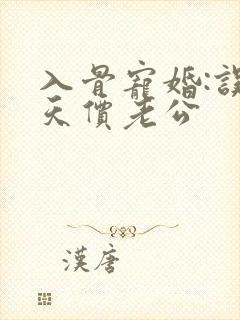 入骨寵婚:誤
天價老公
漢唐